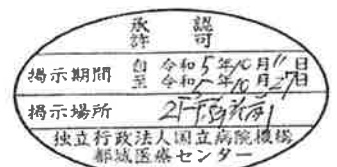 承認
許可
掲示期間 自 令和5年10月11日
至 令和5年10月27日
掲示場所
独立行政法人国立病院機構
都城医療センター